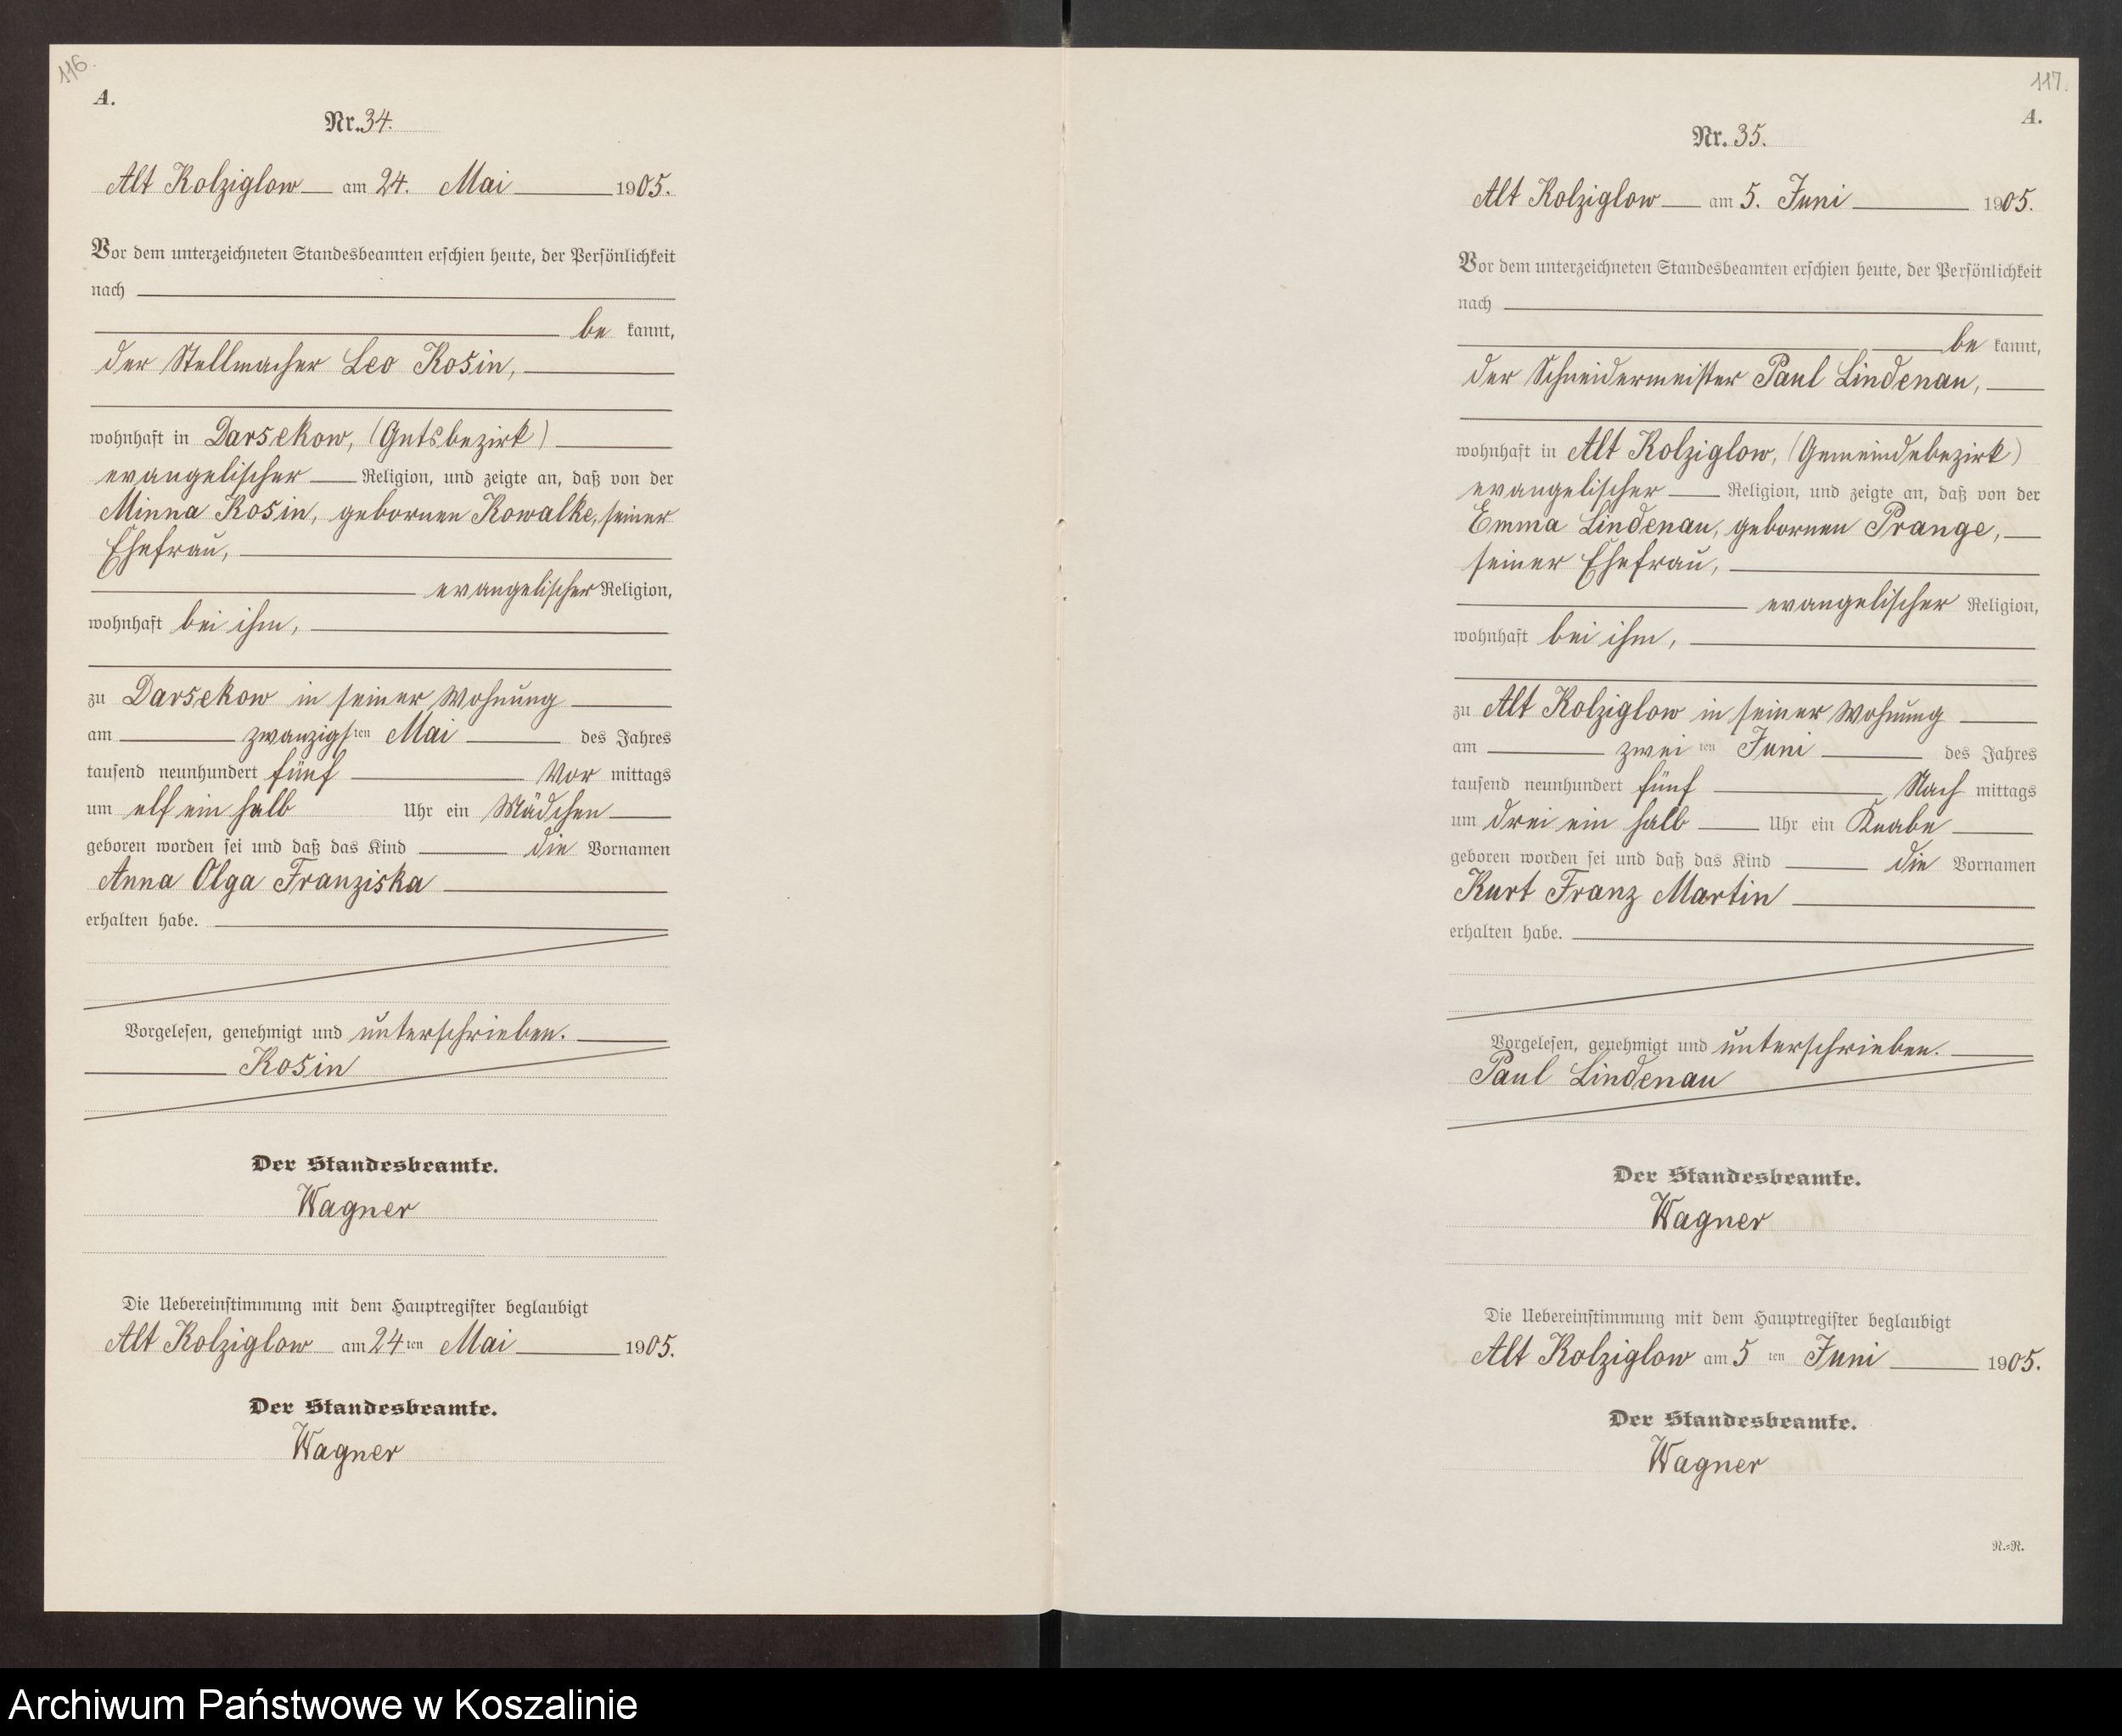 116.
A.
Nr. 34.
Alt Kolziglow am 24. Mai 1905.
Vor dem unterzeichneten Standesbeamten erschien heute, der Persönlichkeit
nach
be kannt,
der Stellmacher Leo Kosin,
wohnhaft in Darsekow, (Gutsbezirk)
evangelischer Religion, und zeigte an, daß von der
Minna Kosin, gebornen Kowalke, seiner
Ehefrau,
evangelischer Religion,
wohnhaft bei ihm,
zu Darsekow in seiner Wohnung
am zwanzigsten Mai des Jahres
tausend neunhundert fünf Vor mittags
um elf ein halb Uhr ein Mädchen
geboren worden sei und daß das Kind die Vornamen
Anna Olga Franziska
erhalten habe.
Vorgelesen, genehmigt und unterschrieben.
Kosin
Der Standesbeamte.
Wagner
Die Uebereinstimmung mit dem Hauptregister beglaubigt
Alt Kolziglow am 24ten Mai 1905.
Der Standesbeamte.
Wagner
117.
A.
Nr. 35.
Alt Kolziglow am 5. Juni 1905.
Vor dem unterzeichneten Standesbeamten erschien heute, der Persönlichkeit
nach
be kannt,
der Schneidermeister Paul Lindenau,
wohnhaft in Alt Kolziglow, (Gemeindebezirk)
evangelischer Religion, und zeigte an, daß von der
Emma Lindenau, gebornen Prange,
seiner Ehefrau,
evangelischer Religion,
wohnhaft bei ihm,
zu Alt Kolziglow in seiner Wohnung
am zwei ten Juni des Jahres
tausend neunhundert fünf Nach mittags
um drei ein halb Uhr ein Knabe
geboren worden sei und daß das Kind die Vornamen
Kurt Franz Martin
erhalten habe.
Vorgelesen, genehmigt und unterschrieben.
Paul Lindenau
Der Standesbeamte.
Wagner
Die Uebereinstimmung mit dem Hauptregister beglaubigt
Alt Kolziglow am 5 ten Juni 1905.
Der Standesbeamte.
Wagner
R.=R.
Archiwum Państwowe w Koszalinie